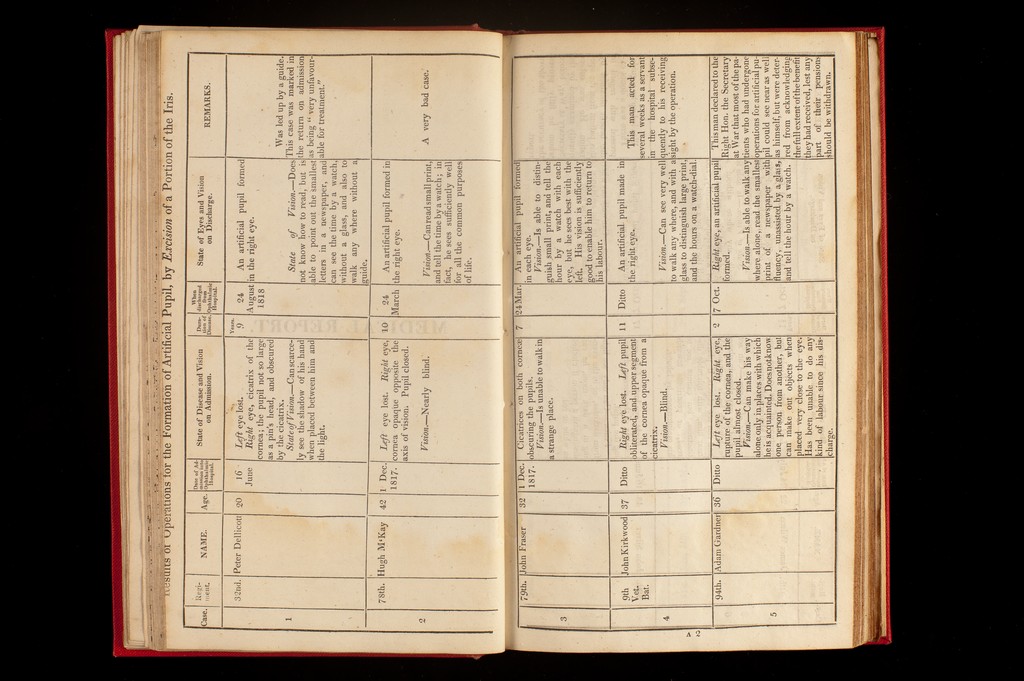 Results of Operations for the Formation of Artificial Pupil, by Excision of a Portion of the Iris.
Case.
Regi-
ment.
NAME.
Age.
Date of Ad-
mission into
Ophthalmic
Hospital.
State of Disease and Vision
on Admission.
Dura-
tion of
Disease.
When
discharged
from
Ophthalmic
Hospital.
State of Eyes and Vision
on Discharge.
REMARKS.
1
32nd.
Peter Dellicott
20
16
June
Left eye lost.
Right eye, cicatrix of the
cornea; the pupil not so large
as a pin's head, and obscured
by the cicatrix.
State of Vision.—Can scarce-
ly see the shadow of his hand
when placed between him and
the light.
Years.
9
24
August
1818
An artificial pupil formed
in the right eye.
State of Vision.—Does
not know how to read, but is
able to point out the smallest
letters in a newspaper, and
can see the time by a watch,
without a glass, and also to
walk any where without a
guide.
Was led up by a guide.
This case was marked in
the return on admission
as being "very unfavour-
able for treatment."
2
78th.
Hugh M'Kay
42
1 Dec.
1817.
Left eye lost. Right eye,
cornea opaque opposite the
axis of vision. Pupil closed.
Vision.—Nearly blind.
10
24
March
An artificial pupil formed in
the right eye.
Vision.—Can read small print,
and tell the time by a watch; in
fact, he sees sufficiently well
for all the common purposes
of life.
A very bad case.
3
79th.
John Fraser
32
1 Dec.
1817.
Cicatrices on both corneæ
obscuring the pupils.
Vision.—Is unable to walk in
a strange place.
7
24 Mar.
An artificial pupil formed
in each eye.
Vision.—Is able to distin-
guish small print, and tell the
hour by a watch with each
eye, but he sees best with the
left. His vision is sufficiently
good to enable him to return to
his labour.
4
9th
Vet.
Bat.
John Kirkwood
37
Ditto
Right eye lost. Left pupil
obliterated, and upper segment
of the cornea opaque from a
cicatrix.
Vision.—Blind.
11
Ditto
An artificial pupil made in
the right eye.
Vision.—Can see very well
to walk any where, and with a
glass to distinguish large print,
and the hours on a watch-dial.
This man acted for
several weeks as a servant
in the hospital subse-
quently to his receiving
sight by the operation.
5
94th.
Adam Gardner
36
Ditto
Left eye lost. Right eye,
rupture of the cornea, and the
pupil almost closed.
Vision.—Can make his way
alone only in places with which
he is acquainted. Does not know
one person from another, but
can make out objects when
placed very close to the eye.
Has been unable to do any
kind of labour since his dis-
charge.
2
7 Oct.
Right eye, an artificial pupil
formed.
Vision.—Is able to walk any
where alone, read the smallest
print of a newspaper with
fluency, unassisted by a glass,
and tell the hour by a watch.
This man declared to the
Right Hon. the Secretary
at War that most of the pa-
tients who had undergone
operations for artificial pu-
pil could see near as well
as himself, but were deter-
red from acknowledging
the full extent of the benefit
they had received, lest any
part of their pensions
should be withdrawn.
A 2